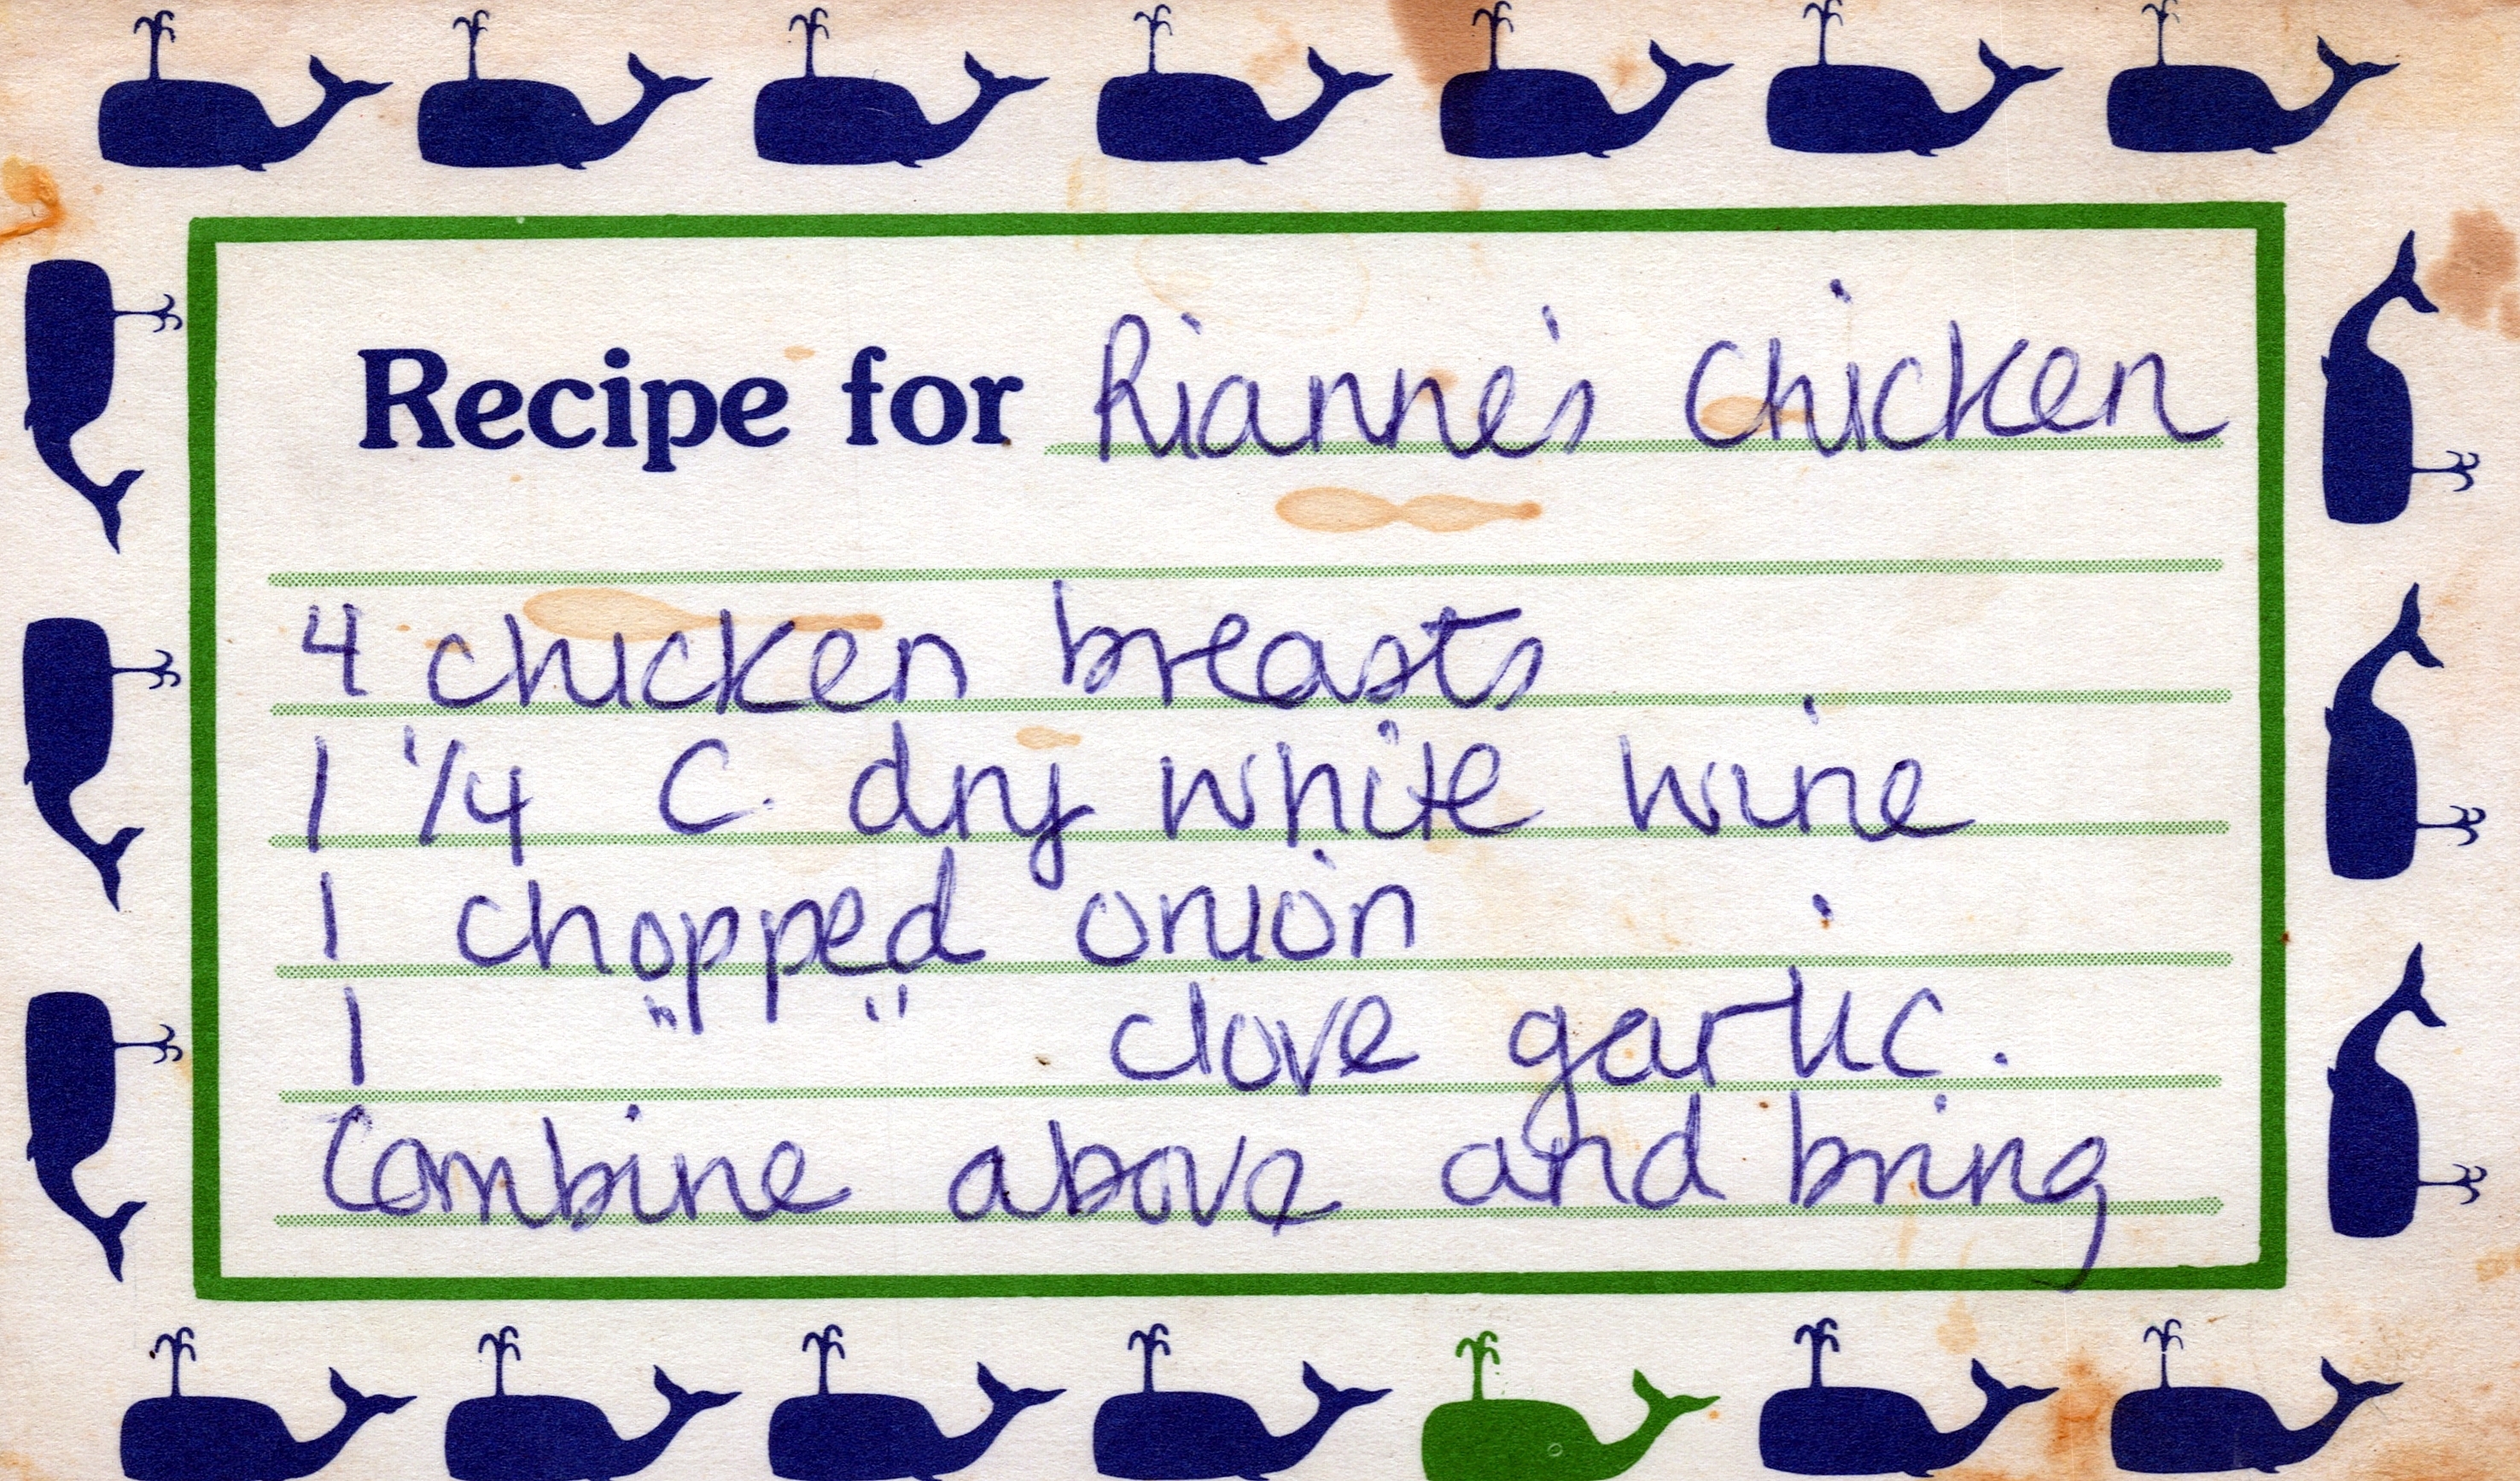 Recipe for Rianne's Chicken
4 chicken breasts
1 1/4 C. dry white wine
1 chopped onion
1 " " clove garlic.
Combine above and bring